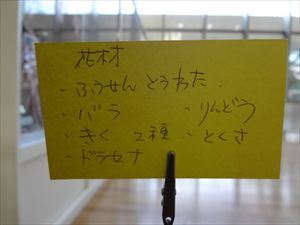 花材
・ふうせんとうわた
・バラ ・りんどう
・きく 2種 ・とくさ
・ドラセナ